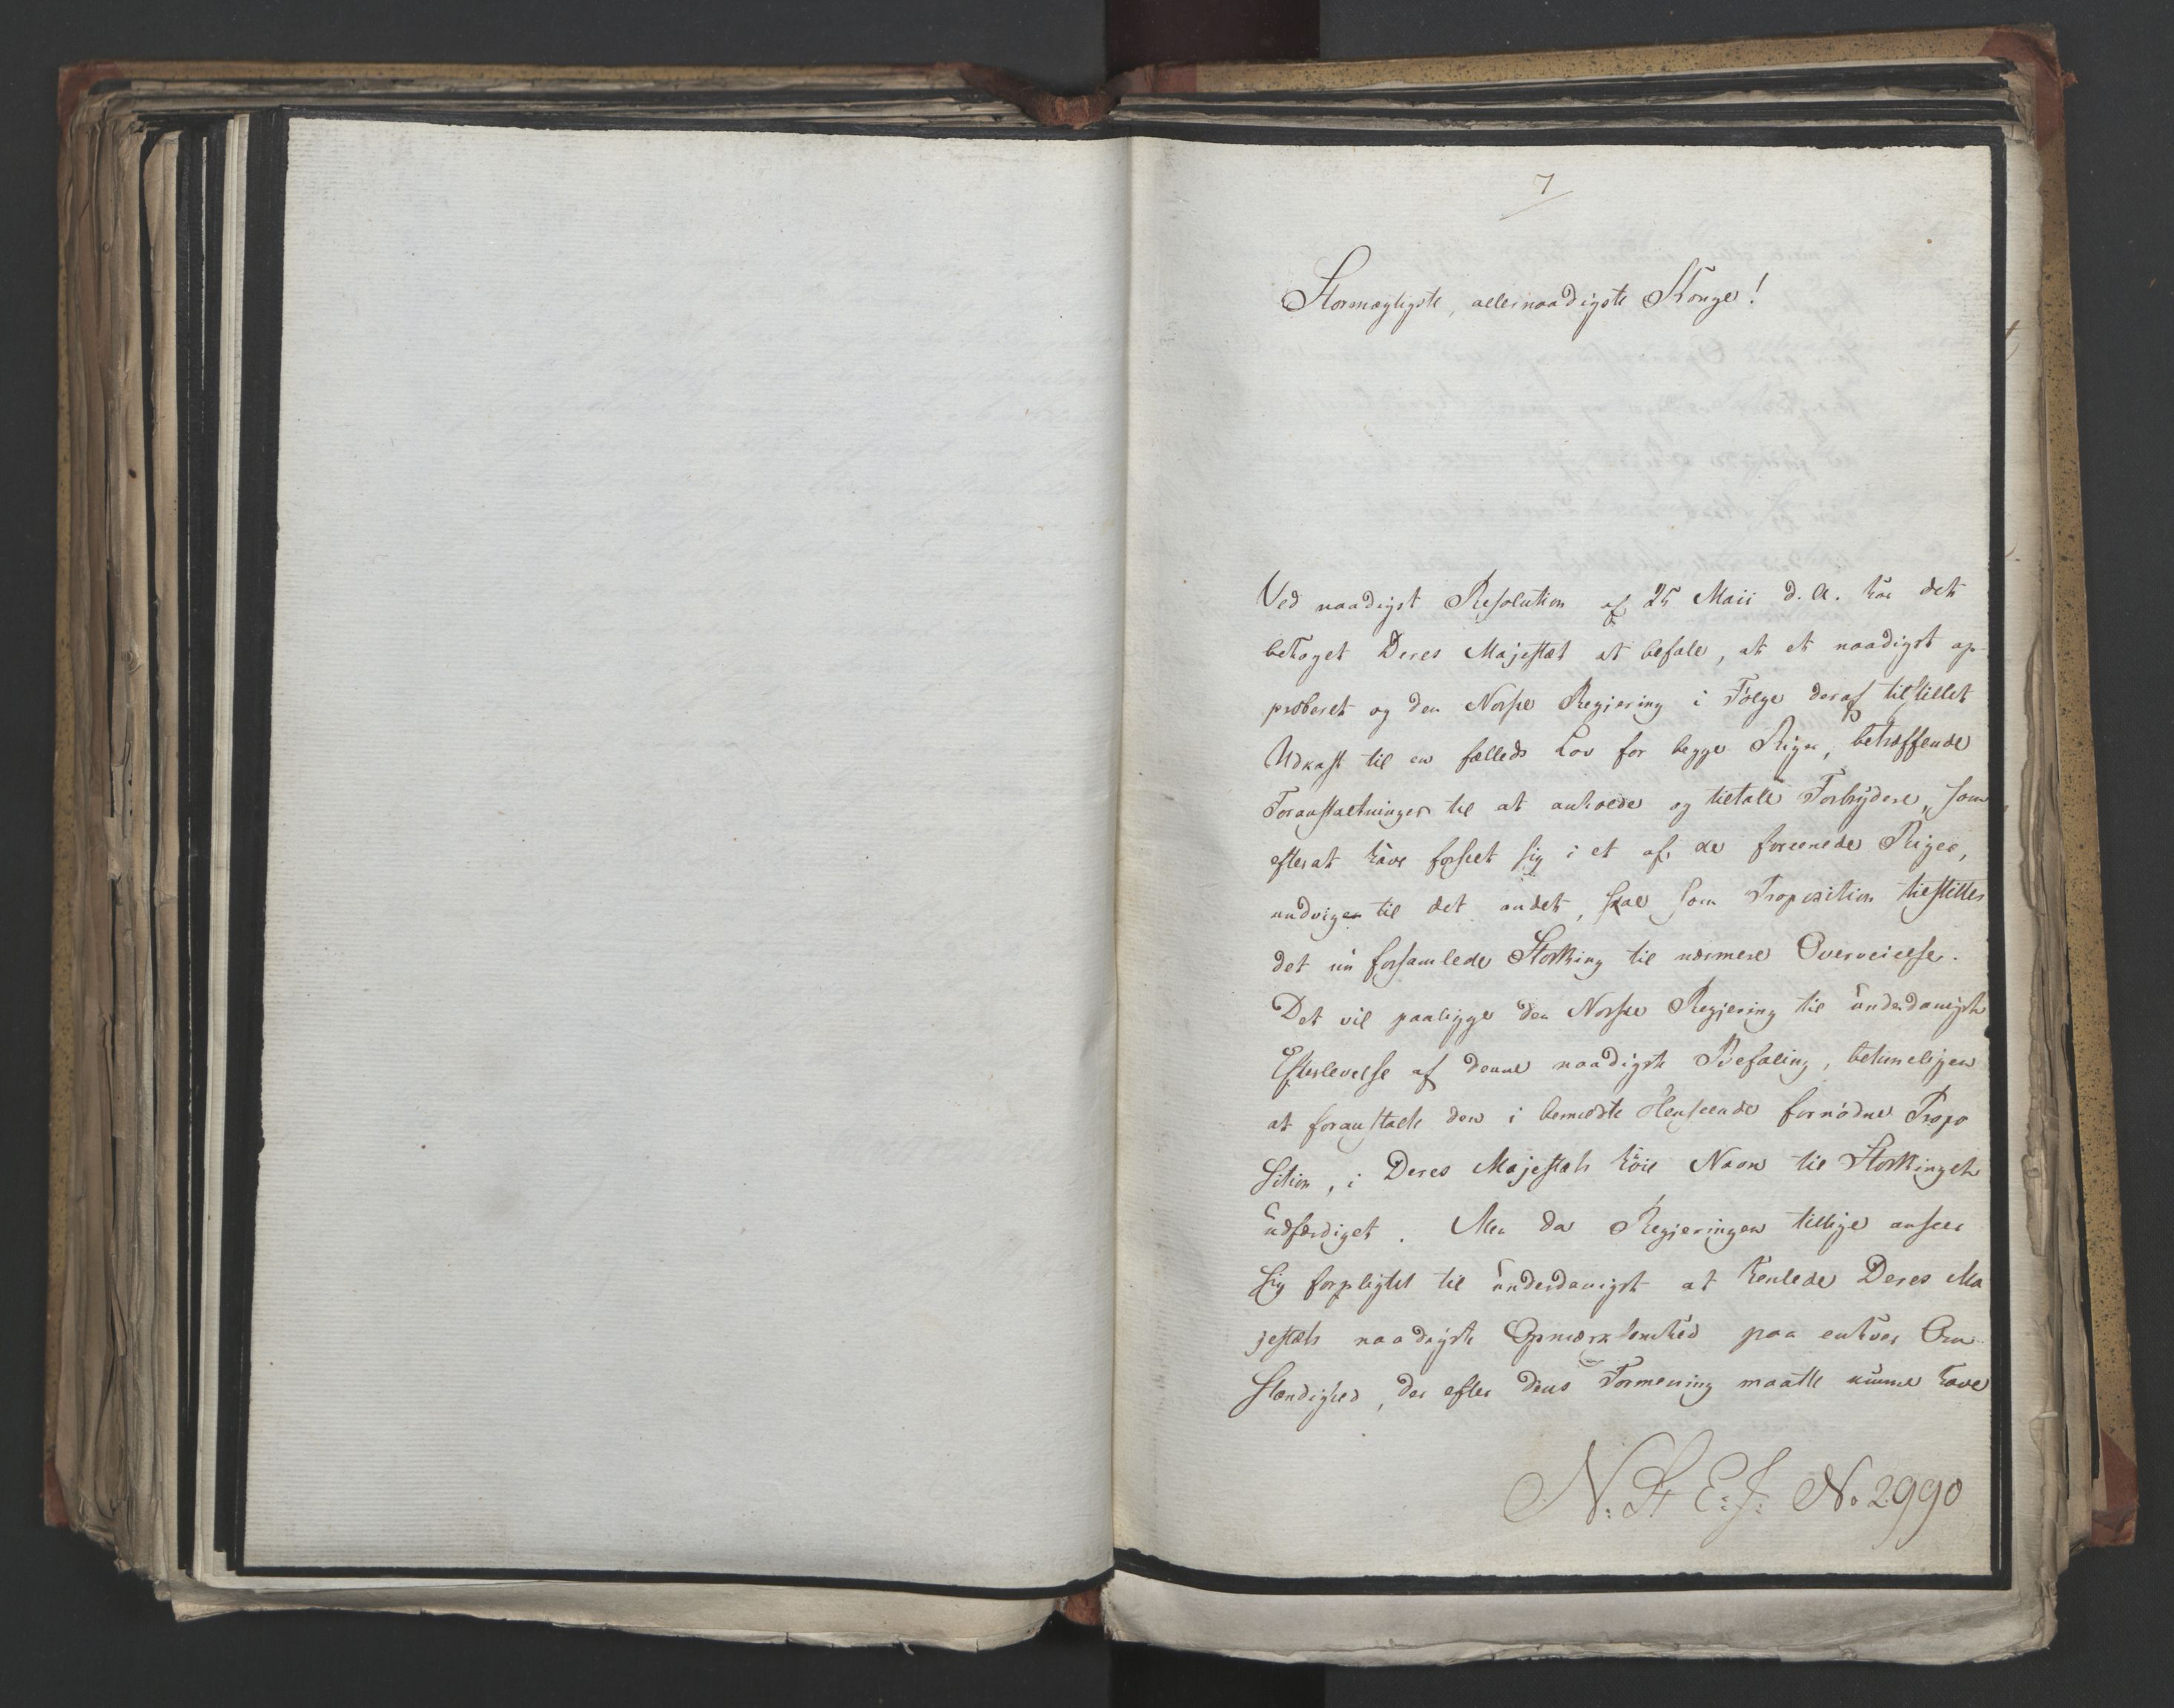 7
Stormægtigste, allernaadigste Konge!
Ved naadigst Resolution af 25 Maii d. A. har det
behaget Deres Majestæt at befale, at et naadigst ap-
proberet og den Norske Regjering i Følge deraf tilstillet
Udkast til en fælleds Lov for begge Riger, betræffende
Foranstaltninger til at anholde og tiltale Forbrydere, som
efterat have forseet sig i et af de foreenede Riger,
undvige til det andet, skal som Proposition tilstilles
det nu forsamlede Storthing til nærmere Overveielse.
Det vil paaligge den Norske Regjering til underdanigst
Efterlevelse af denne naadigste Befaling, betimeligen
at foranstalte den i bemeldte Henseende fornødne Propo
sition, i Deres Majestæts høie Navn til Storthinget
udfærdiget. Men da Regjeringen tillige anseer
sig forpligtet til underdanigst at henlede Deres Ma
jestæts naadigste Opmærksomhed paa enhver Om-
stændighed, der efter dens Formening maatte kunne have
N: St E: J: No 2990